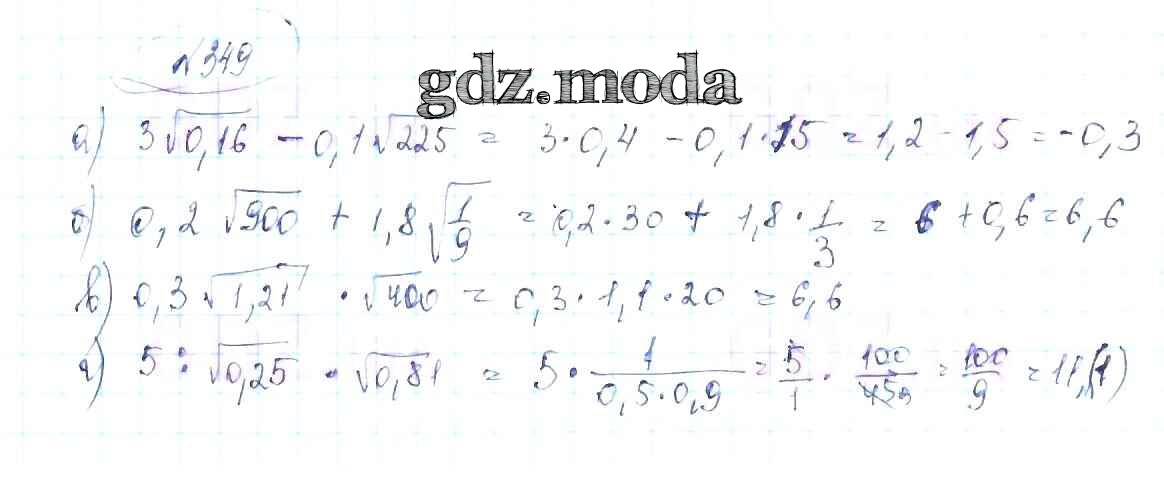 №349
gdz.moda
а) 3√0,16 - 0,1√225 = 3·0,4 - 0,1·15 = 1,2 - 1,5 = -0,3
б) 0,2 √900 + 1,8√1/9 = 0,2·30 + 1,8·1/3 = 6 + 0,6 = 6,6
в) 0,3√1,21 · √400 = 0,3·1,1·20 = 6,6
г) 5 : √0,25 · √0,81 = 5·1/0,5·0,9 = 5/1 · 100/45 = 100/9 = 11,(1)